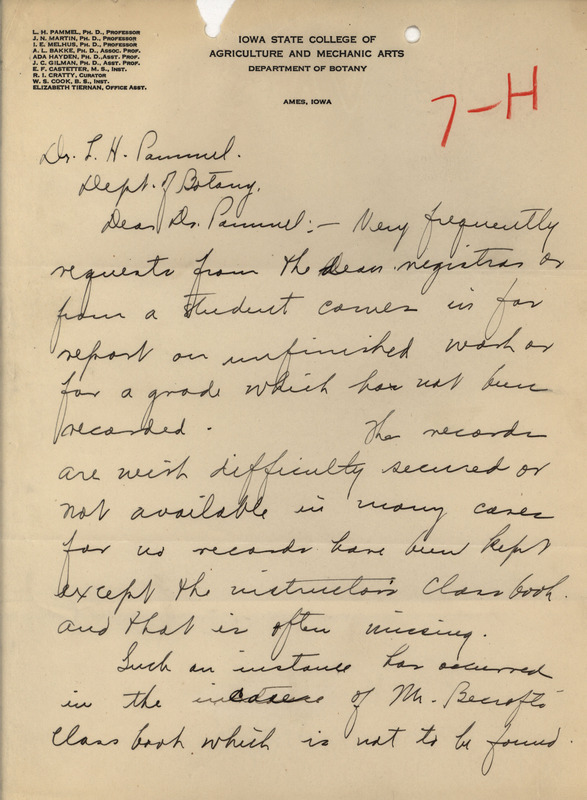 L. H. PAMMEL, PH. D., PROFESSOR
J. N. MARTIN, PH. D., PROFESSOR
I. E. MELHUS, PH. D., PROFESSOR
A. L. BAKKE, PH. D., ASSOC. PROF.
ADA HAYDEN, PH. D., ASST. PROF.
J. C. GILMAN, PH. D., ASST. PROF.
E. F. CASTETTER, M. S., INST.
R. I. CRATTY, CURATOR
W. S. COOK, B. S., INST.
ELIZABETH TIERNAN, OFFICE ASST.
IOWA STATE COLLEGE OF
AGRICULTURE AND MECHANIC ARTS
DEPARTMENT OF BOTANY
AMES, IOWA
7-H
Dr. L. H. Pammel.
Dept. of Botany.
Dear Dr. Pammel:- Very frequently
requests from the dean registrar or
from a student comes in for
report on unfinished work or
for a grade which has not been
recorded. The records
are with difficulty secured or
not available in many cases
for no records have been kept
except the instructor's class book.
and that is often missing.
Such an instance has occurred
in the case of Mr. Becroft's
class book which is not to be found.